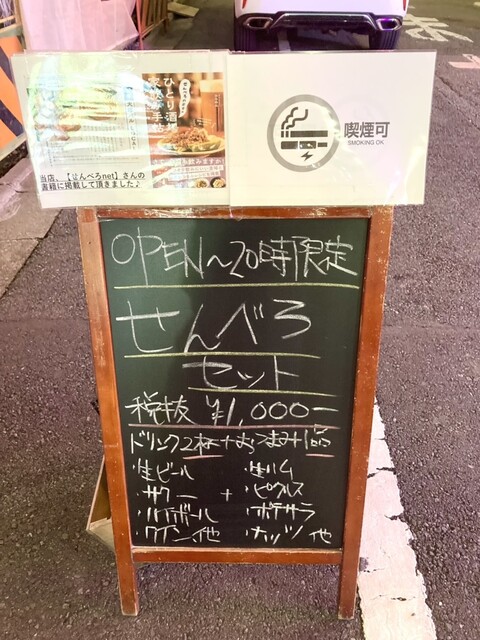 ひとり酒場
当店、【せんべろnet】さんの
書籍に掲載して頂きました♪
喫煙可
SMOKING OK
OPEN〜20時限定
せんべろ
セット
税抜 ¥1,000-
ドリンク2杯+おつまみ1品
・生ビール ・生ハム
・サワー + ・ピクルス
・ハイボール ・ポテサラ
・ワイン 他 ・ナッツ 他